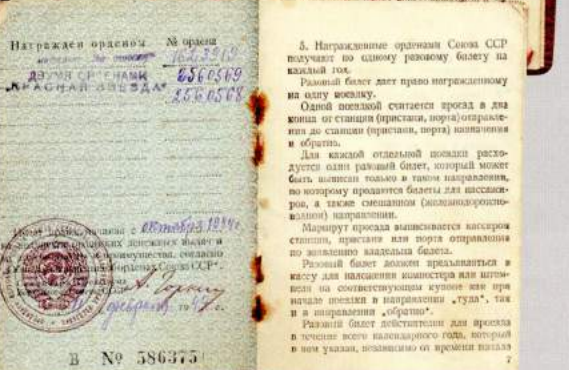 Награжден орденом № ордена
1623919
ДВУМЯ ОРДЕНАМИ 2560569
„КРАСНАЯ ЗВЕЗДА“ 2560568
с октября 1944 г.
денежных выдач и
преимущества, согласно
орденах Союза ССР
февраля 1947 г.
В № 586375
5. Награжденные орденами Союза ССР
получают по одному разовому билету на
каждый год.
Разовый билет дает право награжденному
на одну поездку.
Одной поездкой считается проезд в два
конца от станции (пристани, порта) отправле-
ния до станции (пристани, порта) назначения
и обратно.
Для каждой отдельной поездки расхо-
дуется один разовый билет, который может
быть выписан только в таком направлении,
по которому продаются билеты для пассажи-
ров, а также смешанном (железнодорожно-
водном) направлении.
Маршрут проезда выписывается кассиром
станции, пристани или порта отправления
по заявлению владельца билета.
Разовый билет должен предъявляться в
кассу для наложения компостера или штем-
пеля на соответствующем купоне как при
начале поездки в направлении „туда“, так
и в направлении „обратно“.
Разовый билет действителен для проезда
в течение всего календарного года, который
в нем указан, независимо от времени начала
7